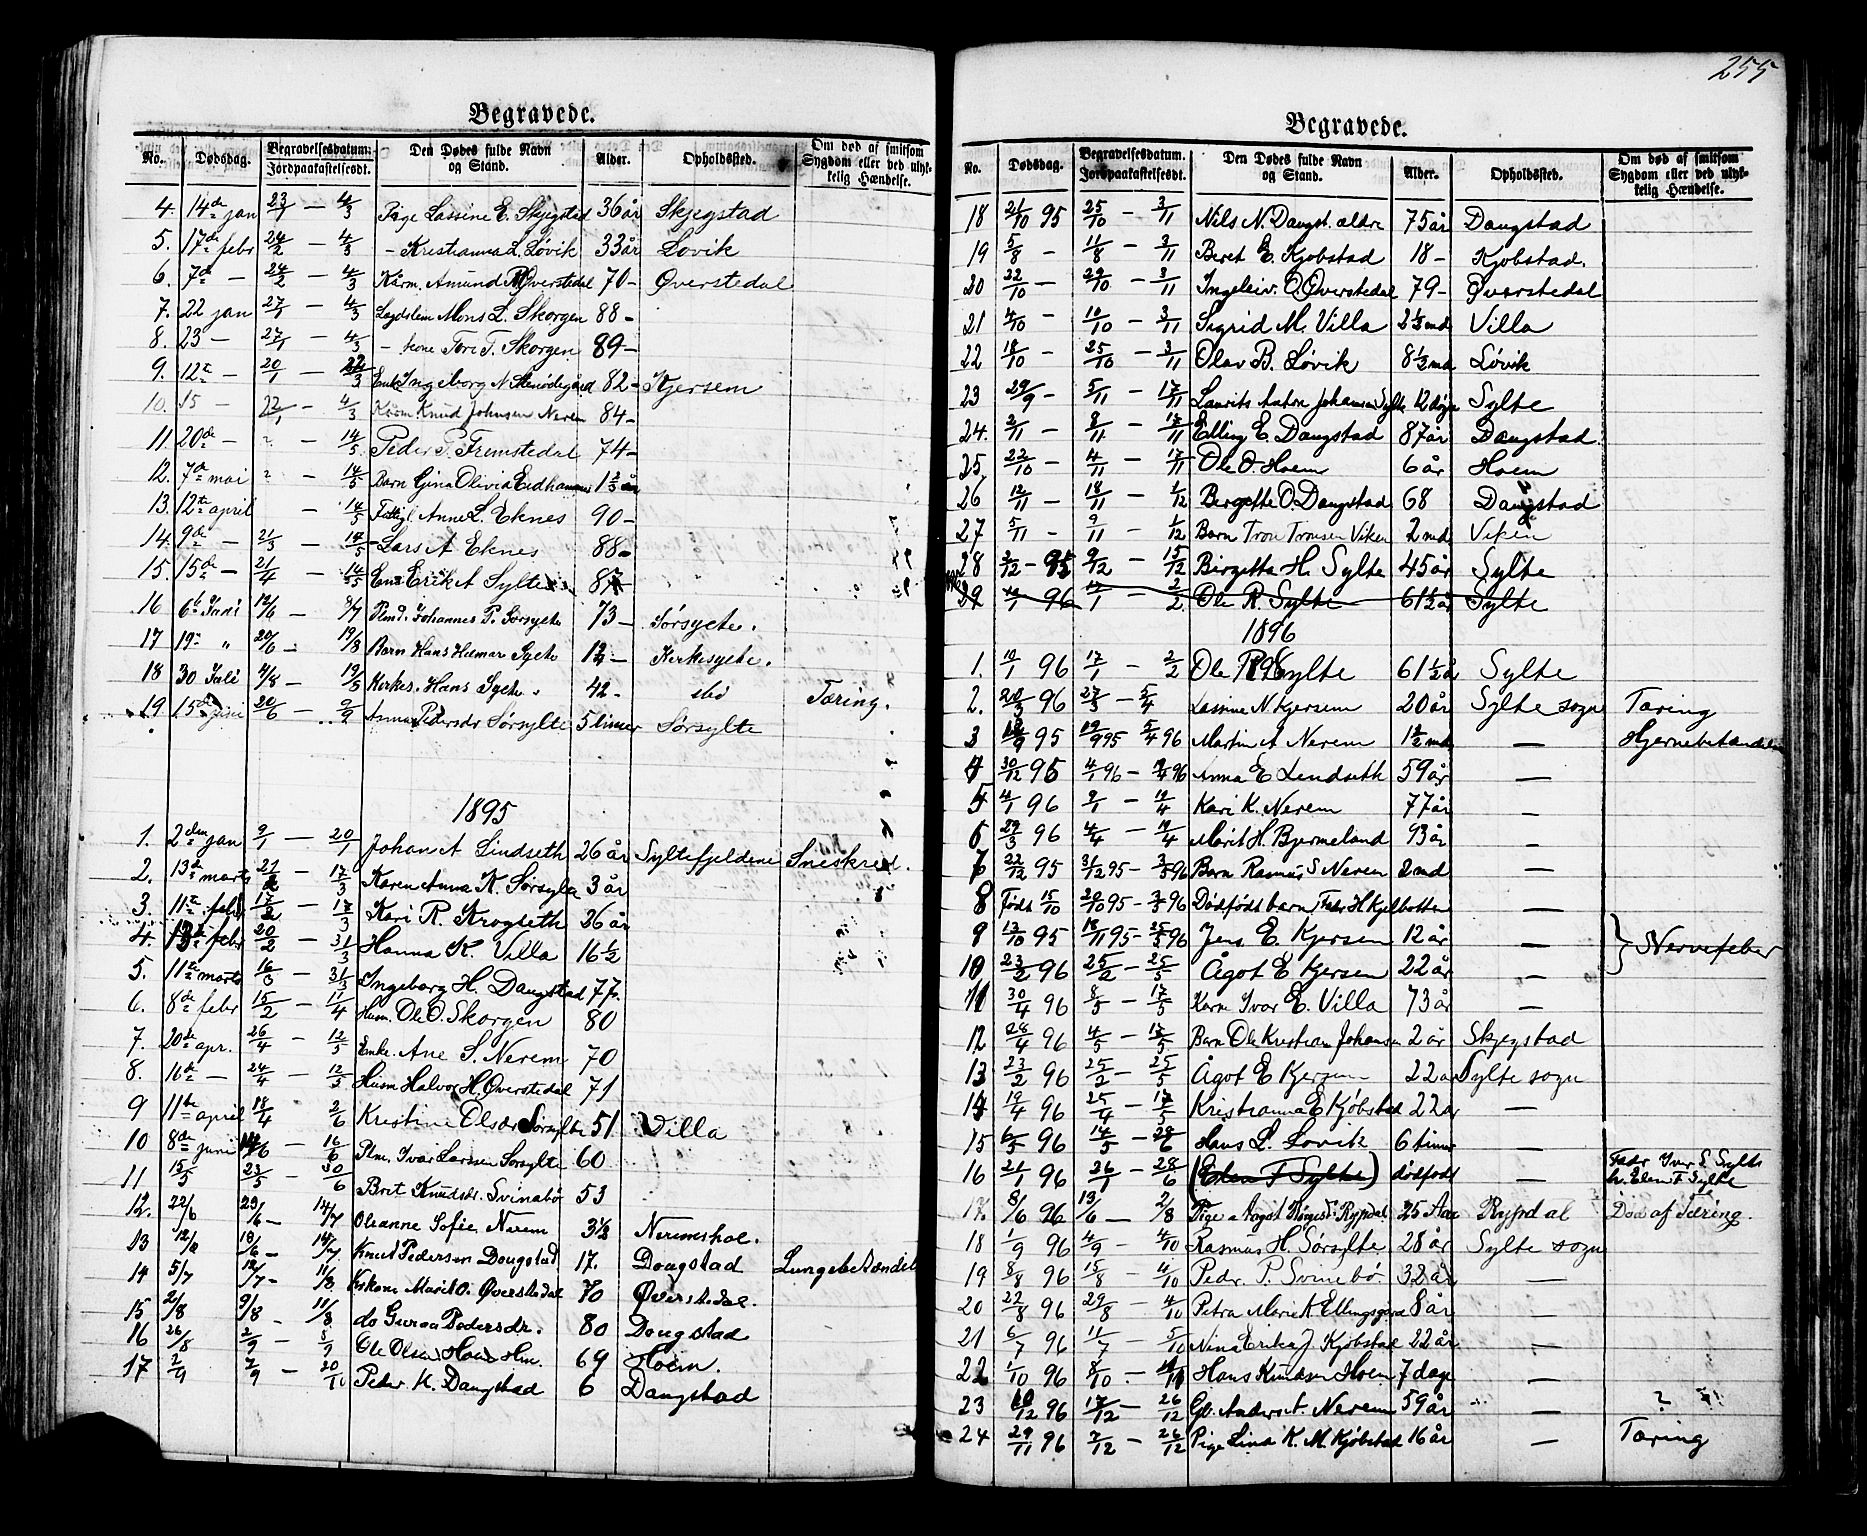 255
Begravede.
No. Dødsdag. Begravelsesdatum. Jordpaakastelsesdt. Den Dødes fulde Navn og Stand. Alder. Opholdssted. Om død af smitsom Sygdom eller ved ulykkelig Hændelse.
4. 14de jan 23/1 — 4/3 Pige Lassine E. Skjegstad 36 år Skjegstad
5. 17de febr 24/2 — 4/3 – Kristianna L. Løvik 33 år Lovik
6. 7de — 24/2 — 4/3 Kårm. Amund Øverstedal 70 – Øverstedal
7. 22 jan 27/1 — 4/3 Legdslem Mons L. Skorgen 88 –
8. 23 — 27/1 — 4/3 – kone Tore T. Skorgen 89 –
9. 12te — 20/1 — 22/3 Enke Ingeborg N Stenødegård 82 – Kjersem
10. 15 — 22/1 — 4/3 Kårm Knud Johnsen Nerem 84 –
11. 20de — " — 14/5 Peder P. Fremstedal 74 –
12. 7de mai " — 14/5 Barn Gina Olivia Eidhammer 1 2/3 år
13. 12te april — 14/5 Fattigl. Anne L. Eknes 90 –
14. 9de — 21/3 — 14/5 Lars A Eknes 88 –
15. 15de — 21/4 — 14/5 Erik A Sylte
16 6te Juni 12/6 8/7 Johannes P. Sørsylte 73 – Sørsylte.
17 19de " 20/6 – 19/8 Barn Hans Hilmar Sylte Kirkesylte.
18 30 Juli 4/8 – 19/8 Kirkes. Hans Sylte 42 – sted Tæring.
19 15de juni 20/6 – 2/9 Anna Pedersdr Sørsylte 5 timer Sørsylte
1895
1. 2den jan 9/1 — 20/1 Johan A Lindseth 26 år Syltefjeldene Sneskred.
2. 13de marts 21/2 — 17/3 Karen Anna K. Sørsylte 3 år
3. 11te febr 17/2 — 17/3 Kari R. Krogseth 26 år
4. 13de febr 20/2 — 31/3 Hanna K. Villa 16 1/2
5. 11te marts 16/3 — 31/3 Ingeborg H. Daugstad 77.
6. 8de febr 15/2 — 17/4 Husm. Ole O. Skorgen 80
7. 20de apr. 26/4 — 12/5 Enke. Ane S. Nerem 70
8. 16de — 24/4 — 12/5 Husm Halvor H. Øverstedal 71
9 11te april 18/4 2/6 Kristine Olsdr Sørsylte 51 Villa
10 8de juni 14/6 — 16/6 Iver Larsen Sørsylte 60
11 15/5 23/5 — 30/6 Brit Knudsdr. Svinabø 53
12. 22/6 29/6 – 14/7 Oleanne Sofie Nerem 3 1/2 Neremshol.
13 12/6 18/6 – 14/7 Knut Pedersen Dougstad 17. Dougstad Lungebetændel
14 5/7 12/7 – 11/8 Marit O. Øverstedal 70 Øverstedal.
15 2/8 9/8 – 11/8 do Guroa Pedersdr. 80 Dougstad
16 26/8 2/9 8/9 Ole Olsen Hoem Hm. 69 Hoem.
17 2/9 7/9 — 20/10 Peder K. Daugstad 6 Daugstad
Begravede.
No. Dødsdag. Begravelsesdatum. Jordpaakastelsesdt. Den Dødes fulde Navn og Stand. Alder. Opholdssted. Om død af smitsom Sygdom eller ved ulykkelig Hændelse.
18 21/10 95 25/10 – 3/11 Nils N. Daugst. ældre 75 år Daugstad
19 5/8 – 11/8 – 3/11 Beret E. Kjøbstad 18 – Kjobstad.
20 22/10 – 29/10 – 3/11 Ingeleiv. O. Øverstedal 79 – Øverstedal
21 4/10 – 10/10 – 3/11 Sigrid M. Villa 2 1/2 md Villa
22 18/10 – 25/10 – 3/11 Olav B. Løvik 8 1/2 md Løvik
23 29/9 – 5/11 – 17/11 Laurits Anton Johansen Sylte 12 døgn Sylte
24. 2/11 – 8/11 – 17/11 Elling E. Daugstad 87 år Daugstad.
25. 22/10 – 4/11 – 17/11 Ole O. Hoem 6 år Hoem
26 12/11 – 18/11 – 1/12 Bergitte O. Daugstad 68 Daugstad
27 5/11 – 9/11 – 1/12 Barn Tron Tronsen Viken 2 md Viken
28 2/12 – 95 9/12 – 15/12 Birgitta H. Sylte 45 år Sylte
29 10/1 96 17/1 – 2/2 Ole R. Sylte 61 1/2 år Sylte
1896
1. 10/1 96 17/1 – 2/2 Ole R. Sylte 61 1/2 å Sylte
2. 20/3 96 27/3 – 5/4 Lassine N. Kjersem 20 år Sylte sogn Tæring
3 95 19/9 95 5/4 96 Martin A Nerem 1 1/2 md — Hjernebetændelse
4 30/12 95 4/1 96 – 96 Anna E Lindseth 59 år —
5 4/1 96 9/1 – 12/4 Kari K. Nerem 77 år —
6 29/3 96 4/4 – 12/4 Marit H. Bjermeland 93 år —
7 22/12 95 31/12 95 – 3/5 96 Barn Rasmus S Nerem 2 md —
8 Født 15/10 20/10 95 – 3/5 96 Dødfødt barn Fader H Kjelbotten —
9 13/10 95 18/11 95 – 25/5 96 Jens E Kjersem 12 år — } Nervefeber
10 23/2 96 25/2 – 25/5 Ågot E Kjersem 22 år —
11 30/4 96 8/5 – 17/5 Karm Ivar E. Villa 73 år —
12 28/4 96 4/5 – 17/5 Barn Ole Kristian Johansen 2 år Skjegstad
13 23/2 96 25/2 – 25/5 Ågot E Kjersem 22 år Sylte sogn
14 19/4 96 25/4 – 17/5 Kristianna E Kjøbstad 22 år —
15 6/5 96 14/5 – 28/6 Hans L. Lovik 6 timer —
16 21/1 96 26/1 – 28/6 (Elen T Sylte) dødfødt — Fadr Iver L Sylte h. Elen T Sylte
17. 8/6 96 13/6 – 2/8 Pige Aagot Rypdal 25 Aar Rypdal Død af Tæring.
18 1/9 96 4/9 – 4/10 Rasmus H. Sørsylte 28 år Sylte sogn
19 8/8 96 15/8 – 4/10 Pedr. P. Svinebø 32 år —
20 22/8 96 29/8 – 4/10 Petra Marie K Ellingsgård 8 år —
21 6/7 96 11/7 – 5/10 Nina Erika J Kjøbstad 22 år —
22 1/10 96 8/10 – Hans Knudsen Hoem 7 dage —
23 10/12 96 17/12 – 26/12 Gb. Anders A. Nerem 59 år — ?
24 29/11 96 7/12 – 26/12 Pige Lina K. M. Kjøbstad 16 år — Tæring